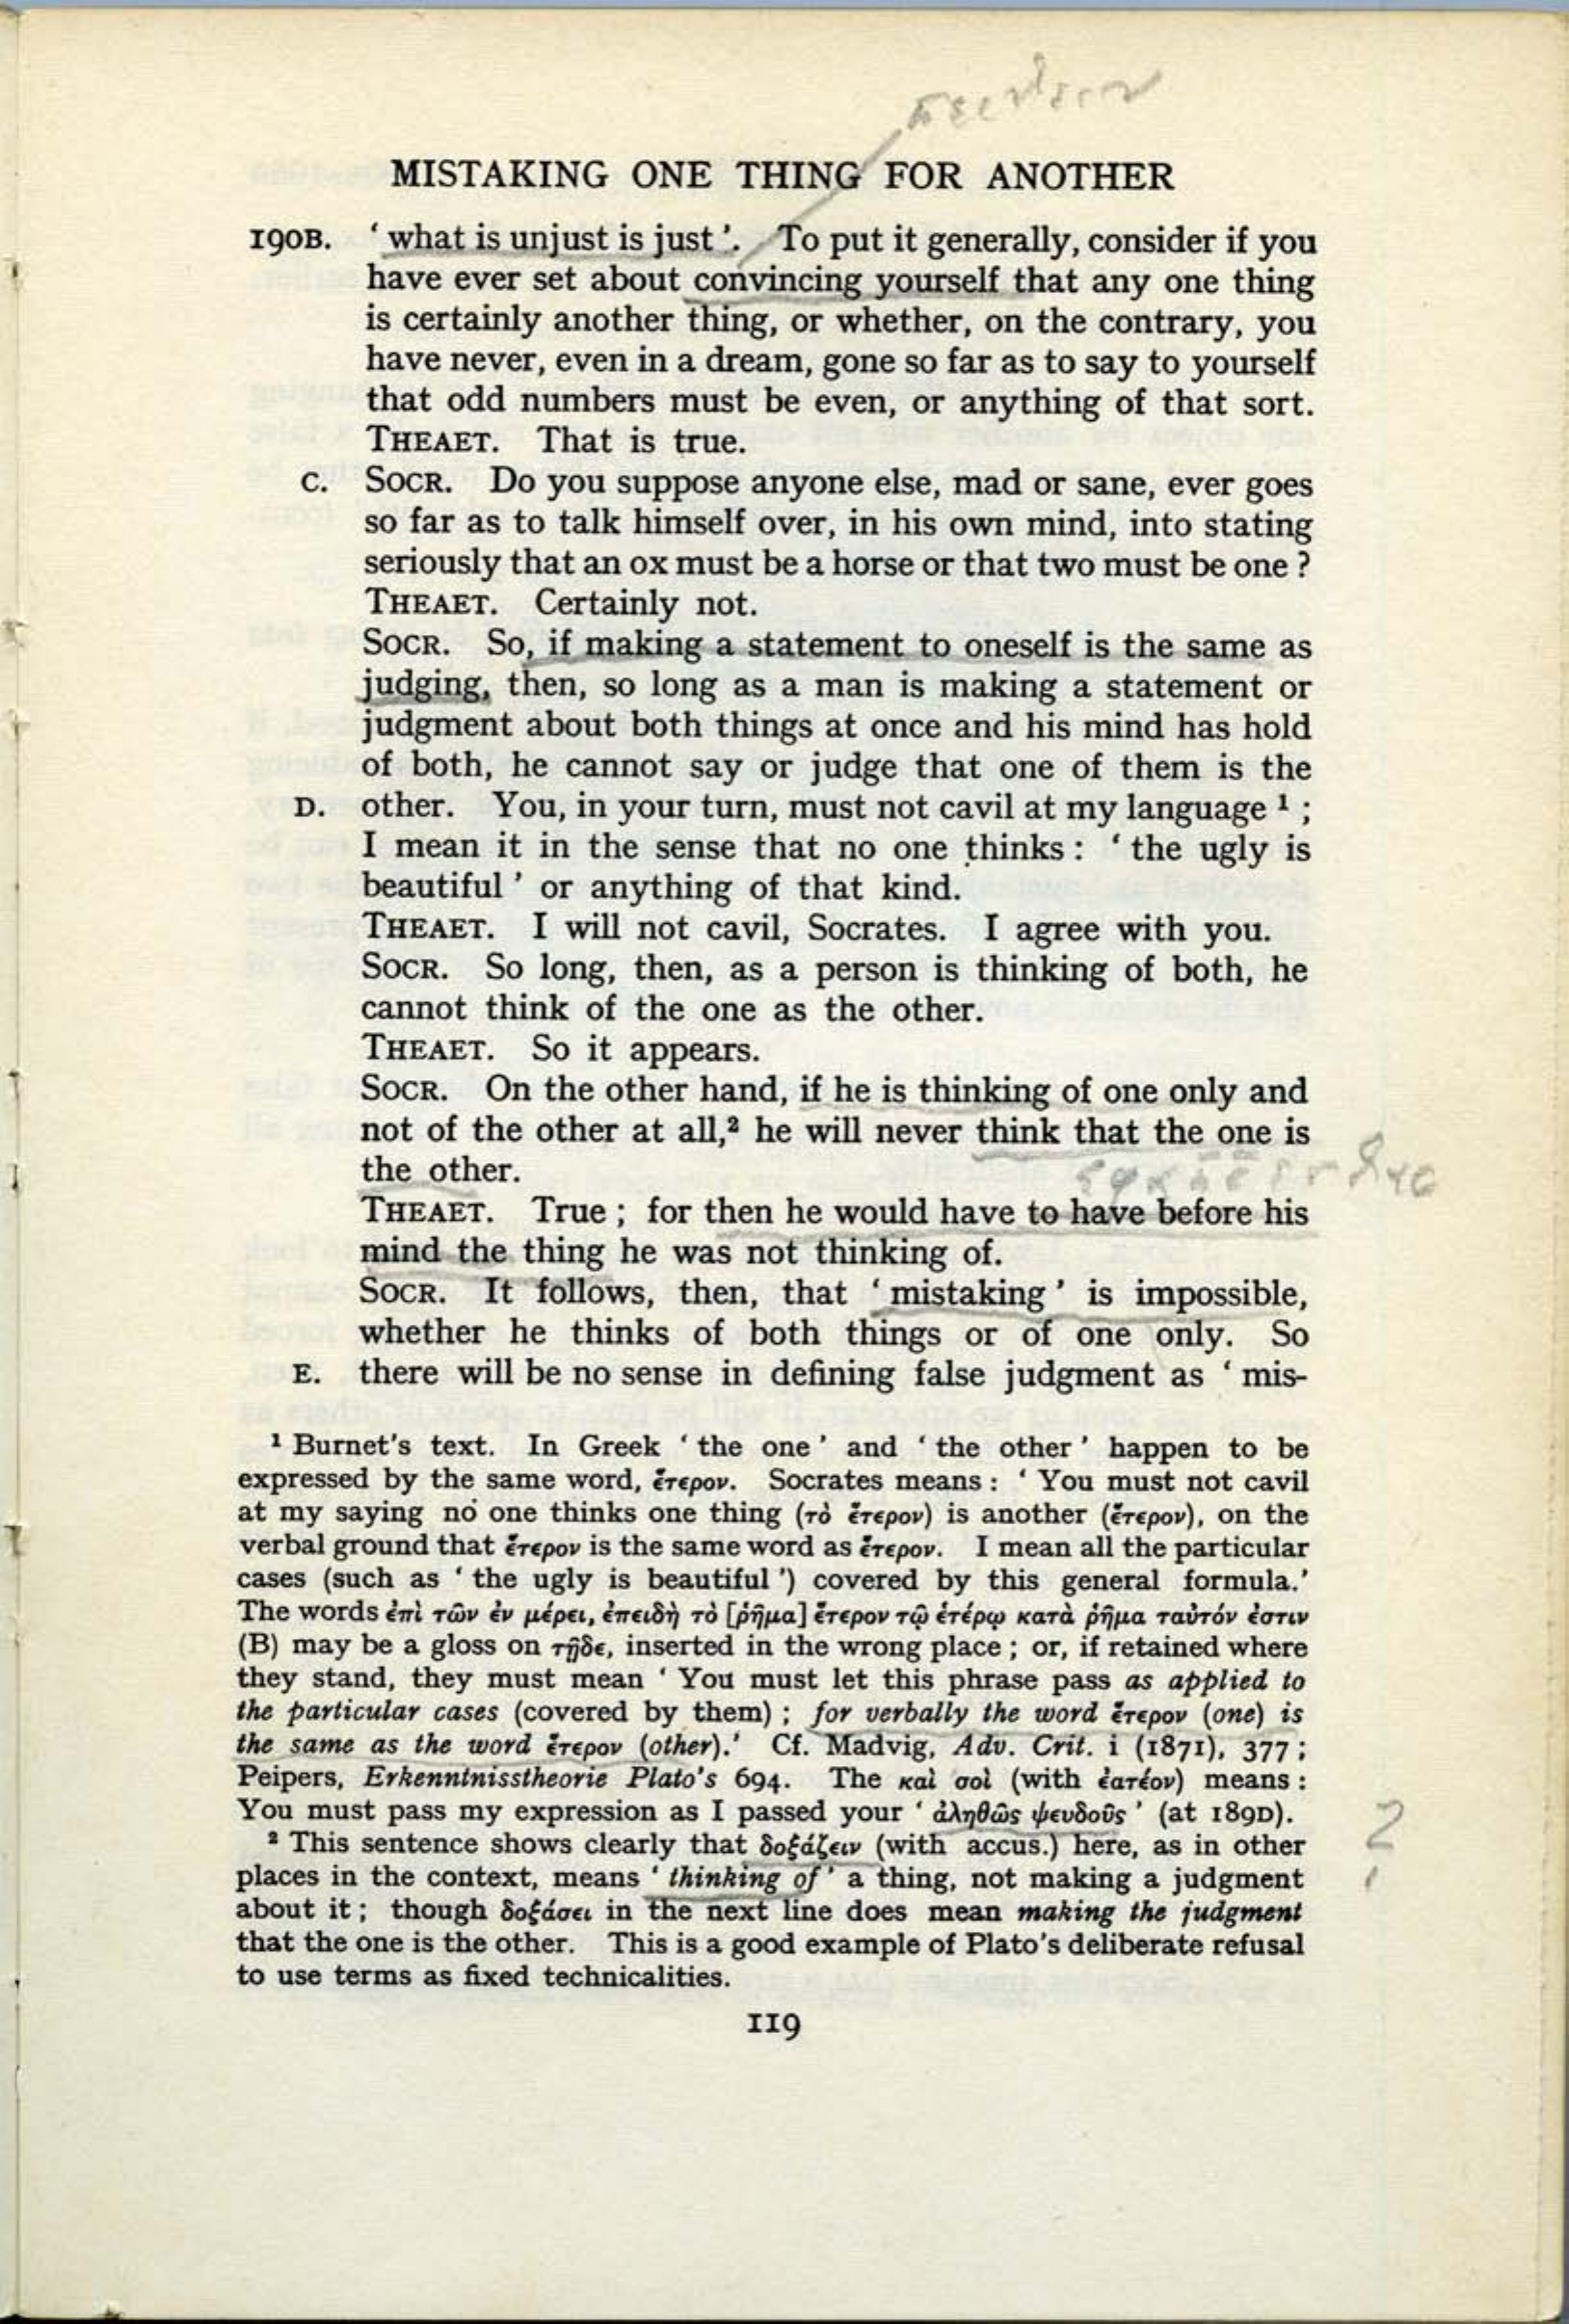 πείθειν
MISTAKING ONE THING FOR ANOTHER
190B. ‘ what is unjust is just ’. To put it generally, consider if you
have ever set about convincing yourself that any one thing
is certainly another thing, or whether, on the contrary, you
have never, even in a dream, gone so far as to say to yourself
that odd numbers must be even, or anything of that sort.
THEAET. That is true.
C. SOCR. Do you suppose anyone else, mad or sane, ever goes
so far as to talk himself over, in his own mind, into stating
seriously that an ox must be a horse or that two must be one ?
THEAET. Certainly not.
SOCR. So, if making a statement to oneself is the same as
judging, then, so long as a man is making a statement or
judgment about both things at once and his mind has hold
of both, he cannot say or judge that one of them is the
D. other. You, in your turn, must not cavil at my language ¹ ;
I mean it in the sense that no one thinks : ‘ the ugly is
beautiful ’ or anything of that kind.
THEAET. I will not cavil, Socrates. I agree with you.
SOCR. So long, then, as a person is thinking of both, he
cannot think of the one as the other.
THEAET. So it appears.
SOCR. On the other hand, if he is thinking of one only and
not of the other at all,² he will never think that the one is
the other.
THEAET. True ; for then he would have to have before his
mind the thing he was not thinking of.
SOCR. It follows, then, that ‘ mistaking ’ is impossible,
whether he thinks of both things or of one only. So
E. there will be no sense in defining false judgment as ‘ mis-
¹ Burnet's text. In Greek ‘ the one ’ and ‘ the other ’ happen to be
expressed by the same word, ἕτερον. Socrates means : ‘ You must not cavil
at my saying no one thinks one thing (τὸ ἕτερον) is another (ἕτερον), on the
verbal ground that ἕτερον is the same word as ἕτερον. I mean all the particular
cases (such as ‘ the ugly is beautiful ’) covered by this general formula.’
The words ἐπὶ τῶν ἐν μέρει, ἐπειδὴ τὸ [ῥῆμα] ἕτερον τῷ ἑτέρῳ κατὰ ῥῆμα ταὐτόν ἐστιν
(B) may be a gloss on τῇδε, inserted in the wrong place ; or, if retained where
they stand, they must mean ‘ You must let this phrase pass as applied to
the particular cases (covered by them) ; for verbally the word ἕτερον (one) is
the same as the word ἕτερον (other).’ Cf. Madvig, Adv. Crit. i (1871), 377 ;
Peipers, Erkenntnisstheorie Plato's 694. The καὶ σοὶ (with ἐατέον) means :
You must pass my expression as I passed your ‘ ἀληθῶς ψευδοῦς ’ (at 189D).
2
² This sentence shows clearly that δοξάζειν (with accus.) here, as in other
places in the context, means ‘ thinking of ’ a thing, not making a judgment
about it ; though δοξάσει in the next line does mean making the judgment
that the one is the other. This is a good example of Plato's deliberate refusal
to use terms as fixed technicalities.
119